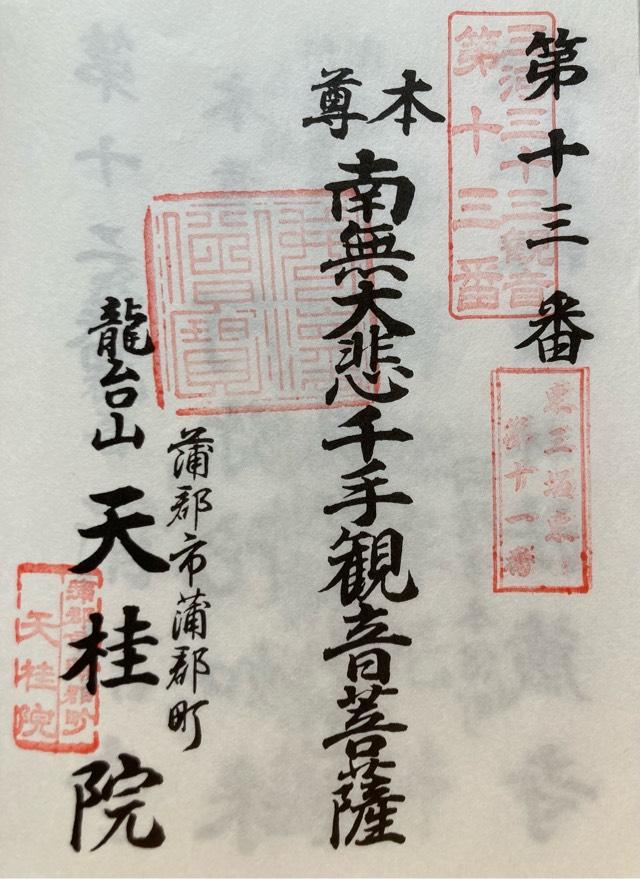 第十三番
三河三十三観音
第十三番
第十一番
本尊
南無大悲千手観音菩薩
蒲郡市蒲郡町
龍台山 天桂院
蒲郡市蒲郡町
天桂院